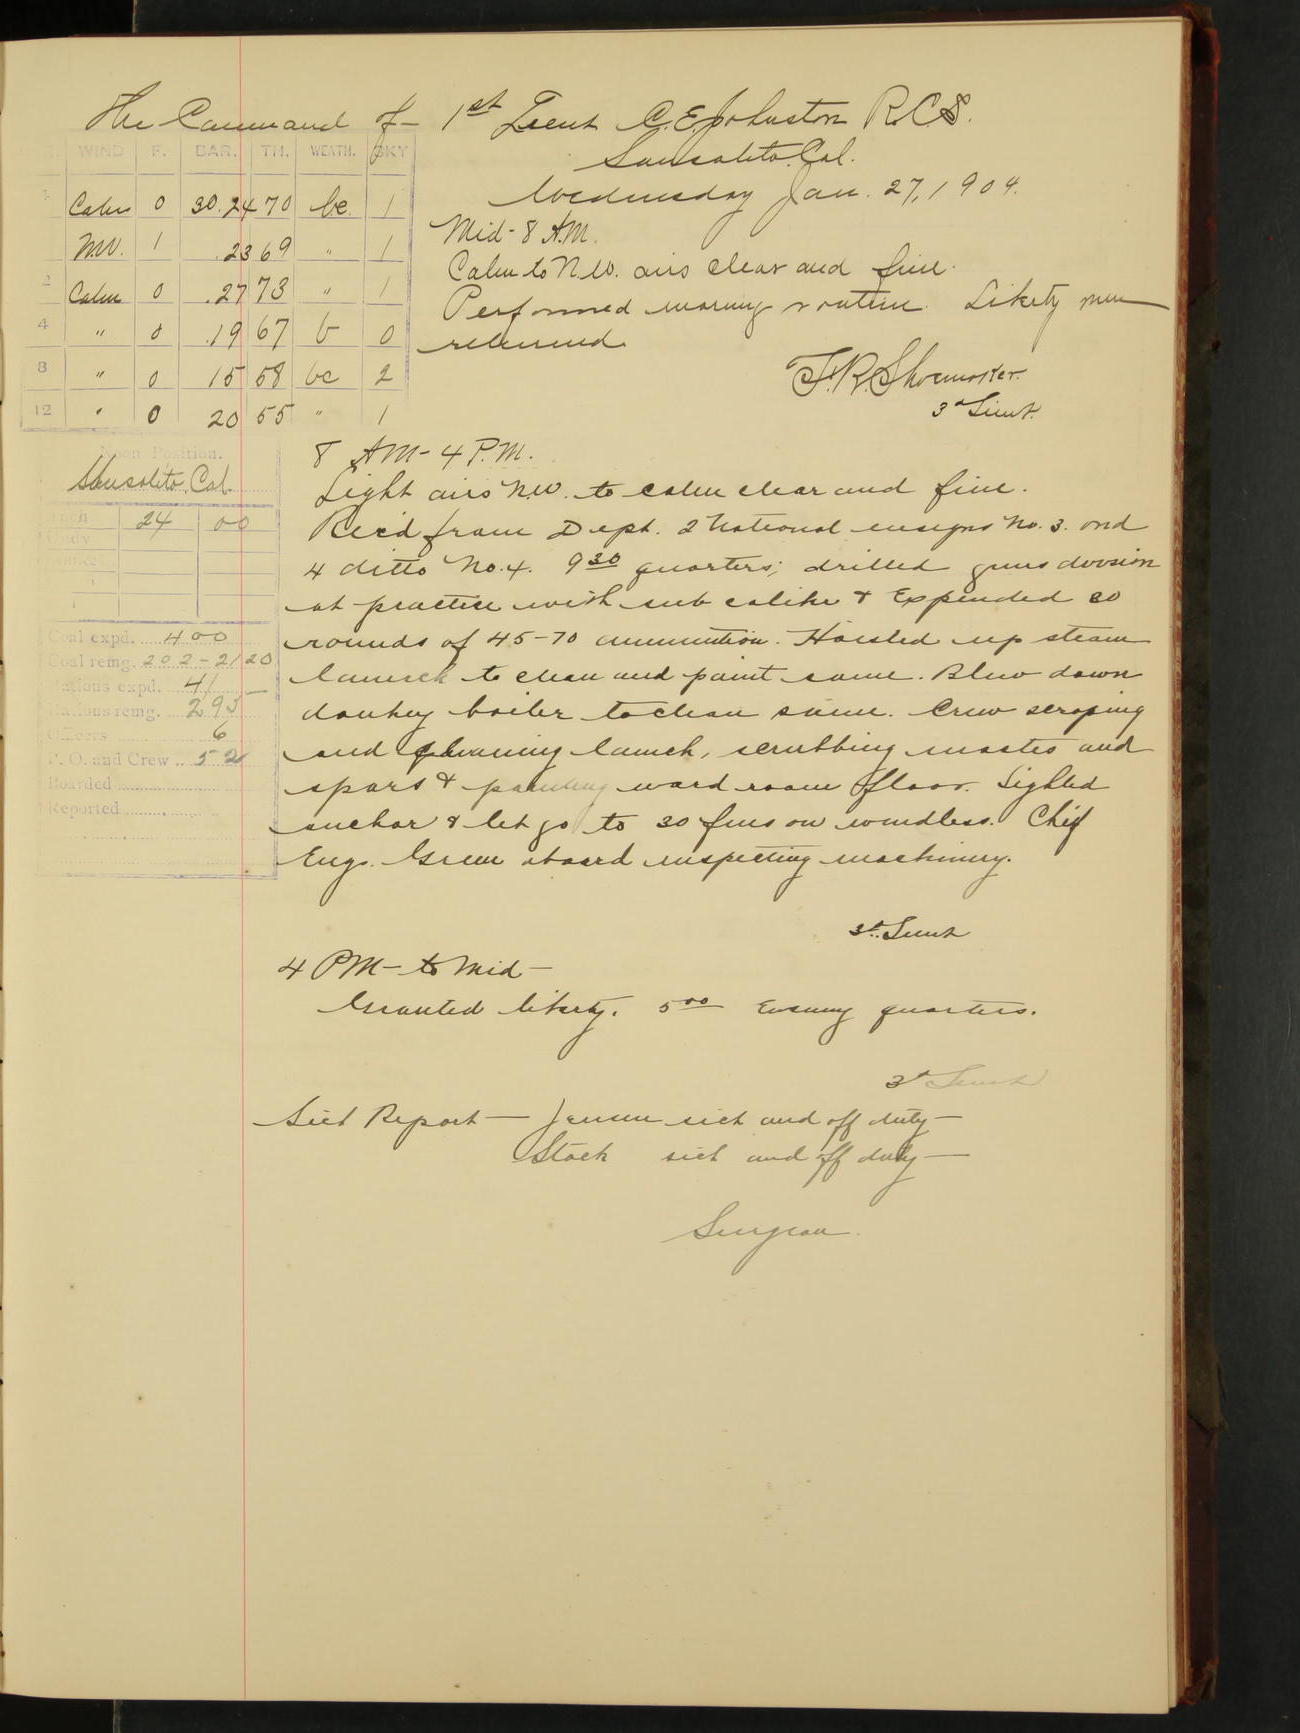 The Command of 1st Lieut C.E. Johnston R.C.S.
Sausalito, Cal.
Wednesday Jan. 27, 1904.
WIND F. BAR. TH. WEATH. SKY
Calm 0 30.24 70 bc 1
N.W. 1 .23 69 " 1
Calm 0 .27 73 " 1
4 " 0 .19 67 b 0
8 " 0 15 58 bc 2
12 " 0 20 55 " 1
Noon Position.
Sausalito, Cal.
24 00
Coal expd. 400
Coal remg. 202-2120
Rations expd. 41
Rations remg. 295
Officers 6
P. O. and Crew 52
Boarded
Reported
Mid - 8 A.M.
Calm to N.W. airs clear and fine.
Performed morning routine. Liberty men
returned.
F.R. Shoemaker.
3d Lieut.
8 AM - 4 P.M.
Light airs N.W. to calm clear and fine.
Rec'd from Dept. 2 National ensigns No. 3. and
4 ditto No. 4. 9 30 quarters; drilled guns division
at practice with sub calibre & Expended 20
rounds of 45-70 ammunition. Hoisted up steam
launch to clean and paint same. Blew down
donkey boiler to clean same. Crew scraping
and cleaning launch, scrubbing masts and
spars & painting ward room floor. Sighted
anchor & let go to 30 fms on windlass. Chief
Engr. Green aboard inspecting machinery.
3d. Lieut
4 PM - to Mid -
Granted liberty. 5 00 Evening quarters.
3d Lieut
Sick Report — Jensen sick and off duty —
Stock sick and off duty —
Surgeon.